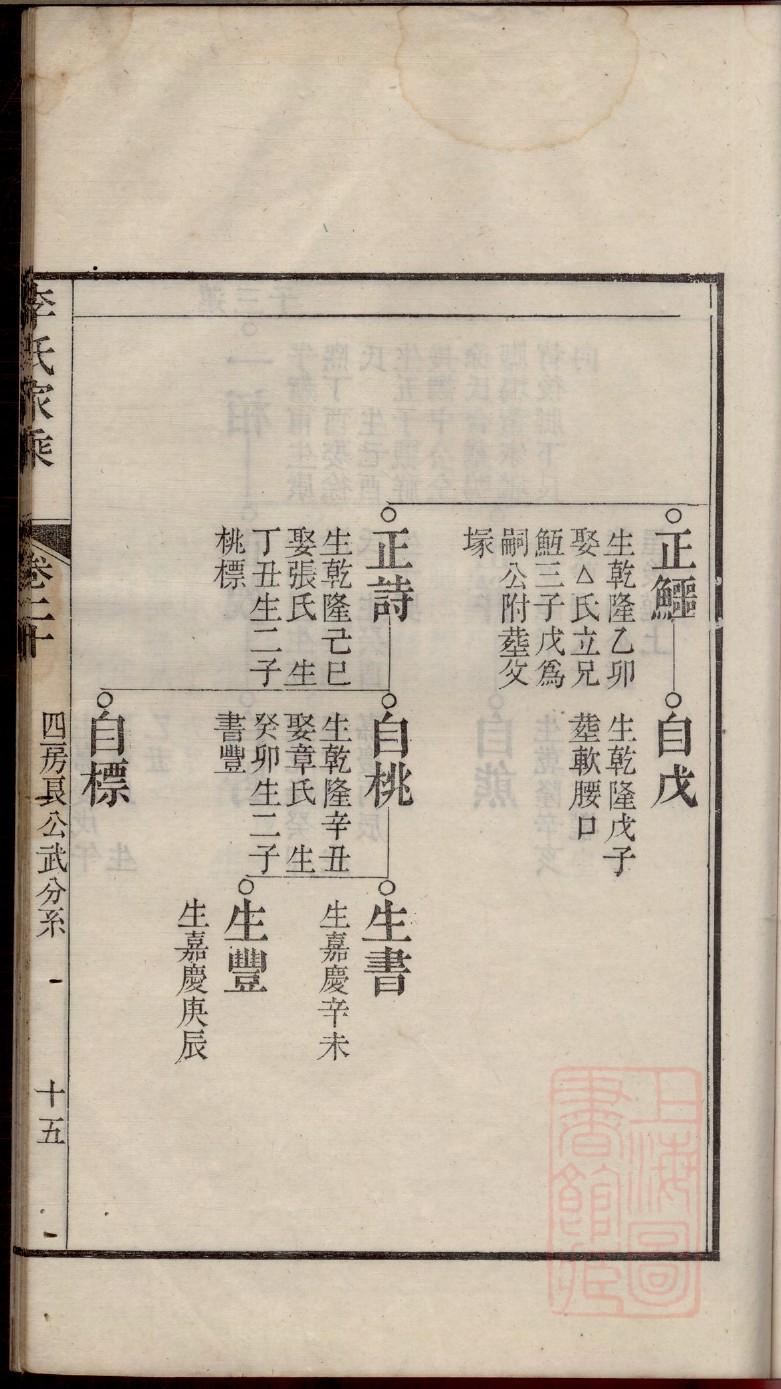 正鱷
生乾隆乙卯
娶△氏立兄
魱三子戊爲
嗣公附塟父
塚
自戊
生乾隆戊子
塟軟腰口
正詩
生乾隆己巳
娶張氏 生
丁丑生二子
桃標
自桃
生乾隆辛丑
娶章氏 生
癸卯生二子
書豐
生書
生嘉慶辛未
生豐
生嘉慶庚辰
自標
李氏家乘
卷二十
四房良公武分系
十五
上海圖
書館藏